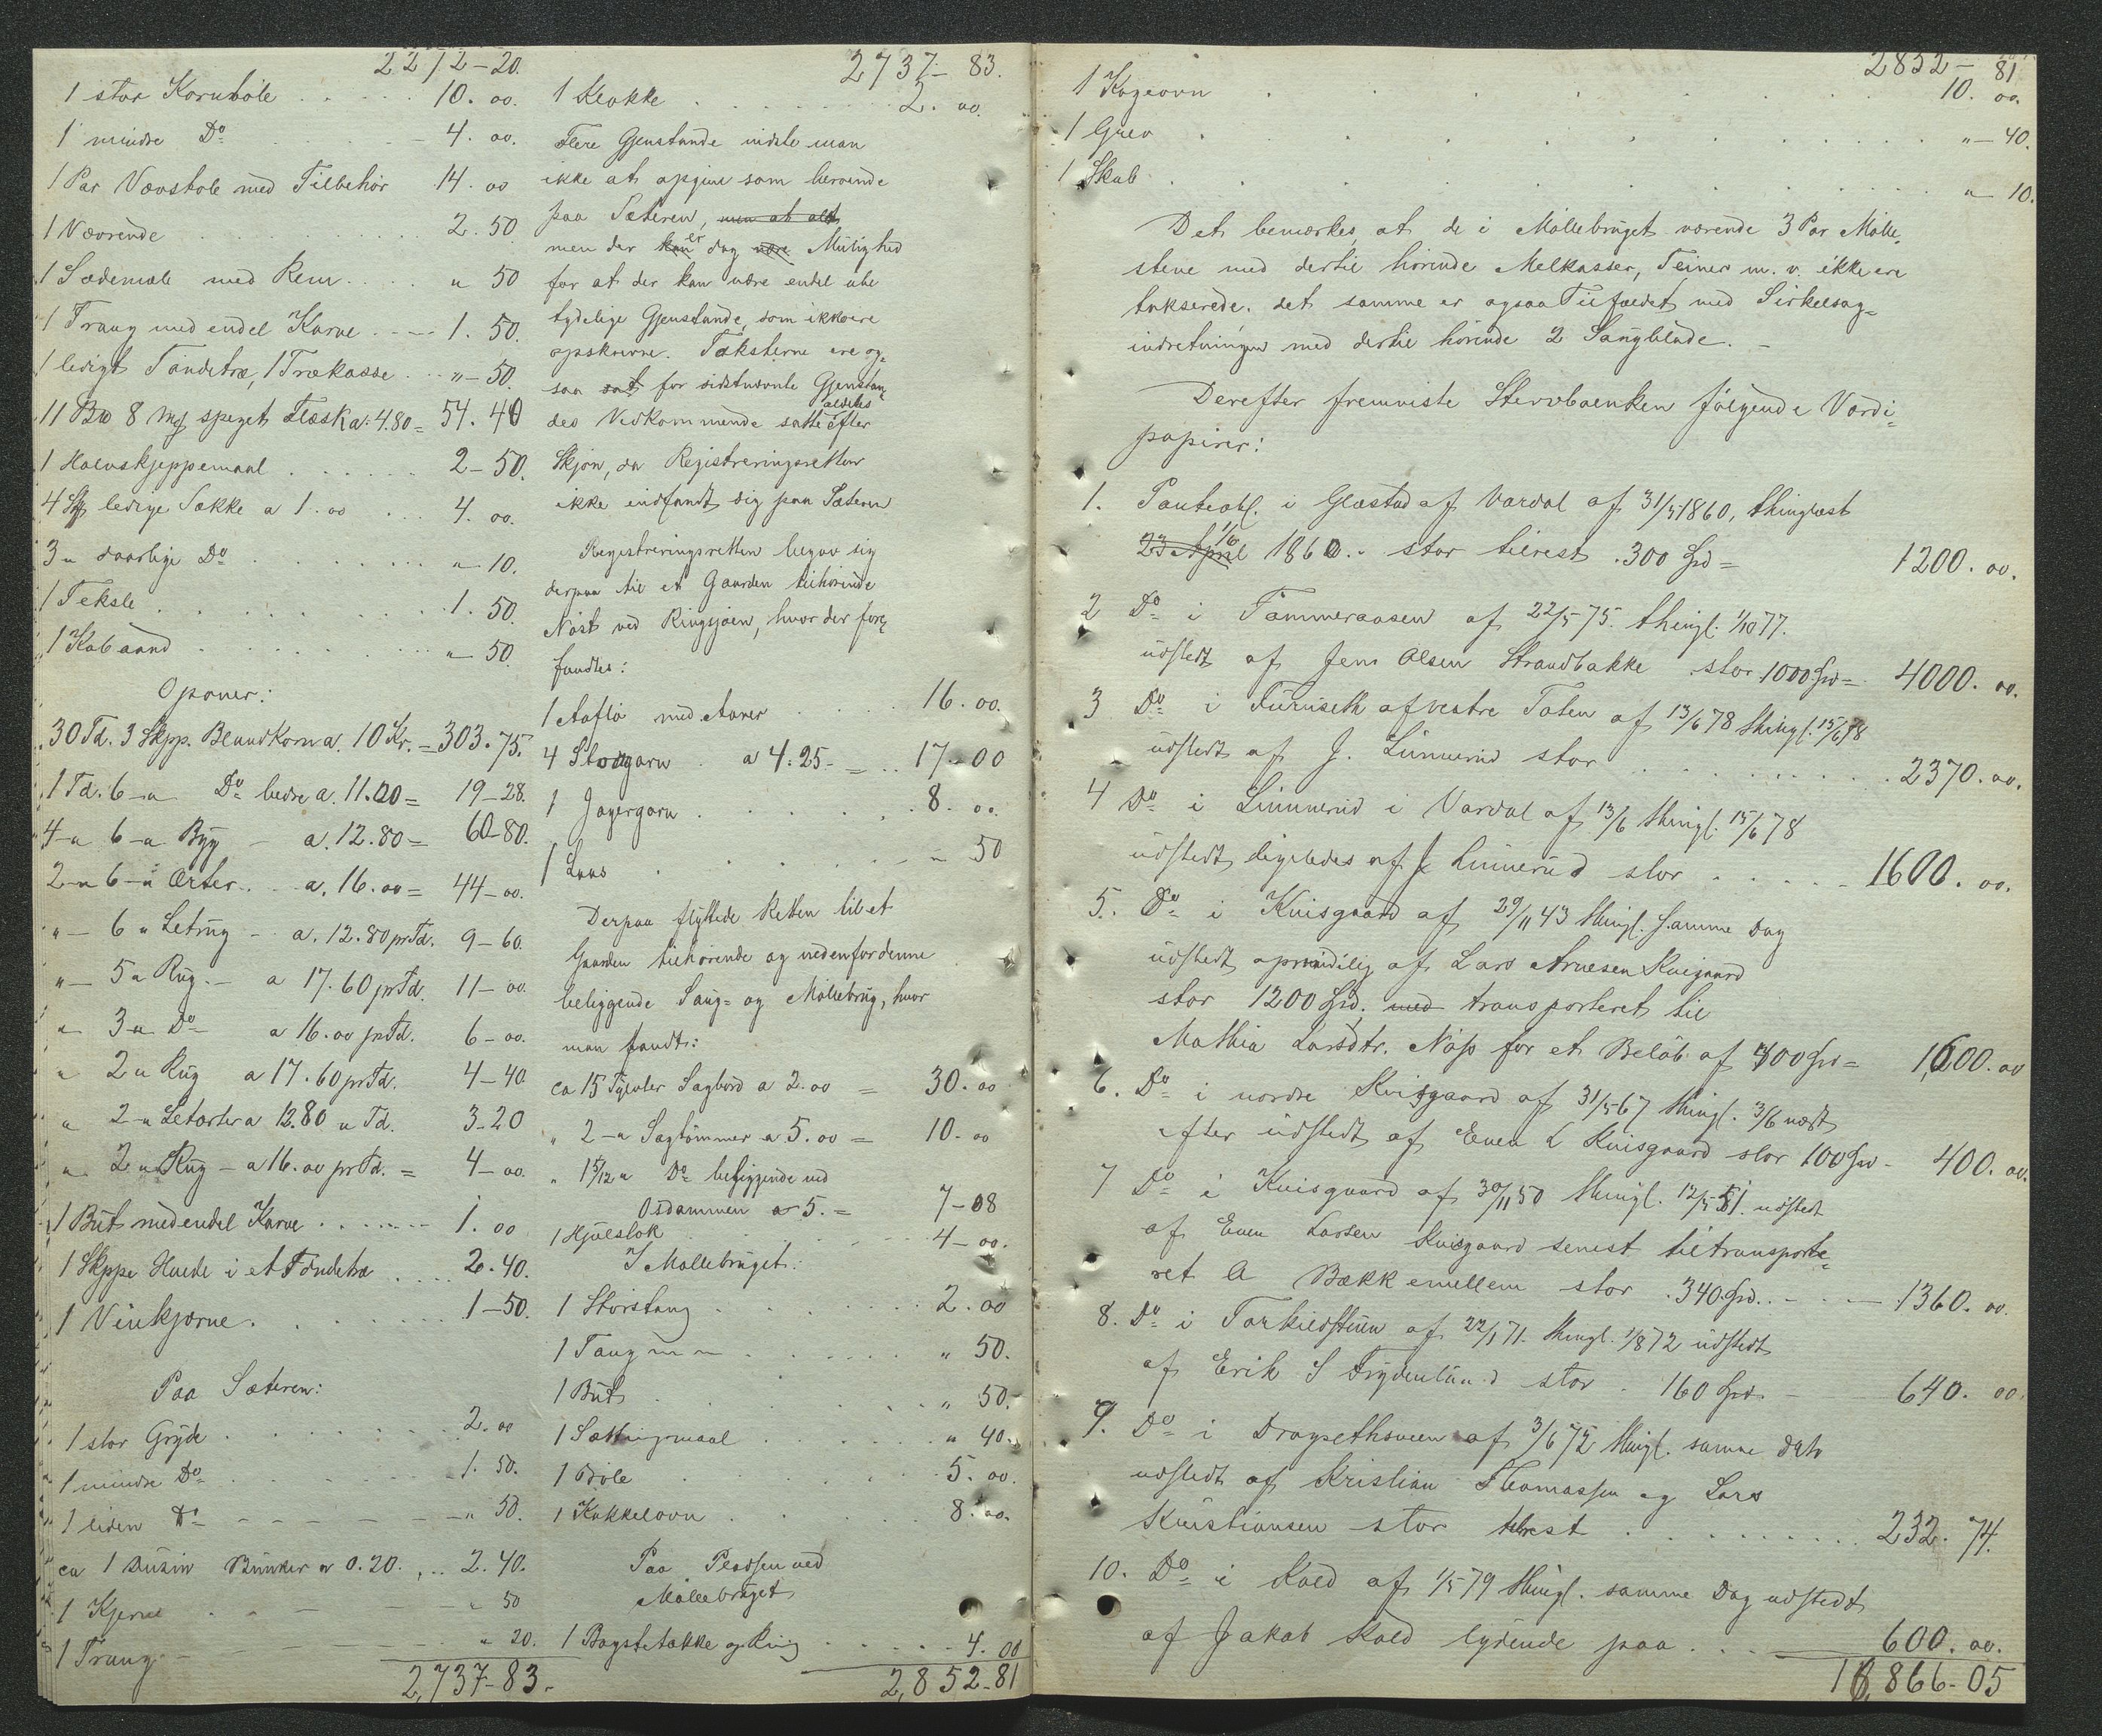 2272-20.
1 stor Kornböle . . . . . 10. 00.
1 mindre Do . . . . . 4. 00.
1 Par Vævstole med Tilbehör 14. 00
1 Værende . . . . . 2. 50
1 Sædemæle med Rem . . . . " 50
1 Traug med endel Karve . . . . 1. 50.
1 ledigt Töndetræ, 1 Trækasse . . . " - 50.
11 Bd 8 Mg speget Flesk a. 4.80 = 54. 40
1 Halvskjeppemaal . . . . . 2 - 50.
4 Stk ledige Sække a 1. 00 . . . 4. 00.
3 " daarlige Do . . . . . " 10.
1 Teksle . . . . . 1. 50.
1 Kobaand . . . . . " 50.
Opover:
30 Td. 3 Skpp. Blandkorn a. 10 Kr. = 303. 75.
1 Td. 6 - " Do bedre a. 11.00 = 19 - 28.
4 - " 6 - " Byg - a. 12.80 = 60 - 80.
2 - " 6 - " Ærter . . a. 16. 00 = 44 - 00.
" - 6 " Letrug - a. 12.80 pr Td. 9 - 60.
" - 5 " Rug . - a 17.60 pr Td. 11 - 00.
" 3 - " Do a 16. 00 pr Td. 6 - 00.
" 2 " Rug a 17.60 pr Td. 4 - 40
" 2 - " Letærter a 12.80 " Td. 3 - 20
" 2 " Rug - a 16. 00 pr Td. = 4 - 00.
1 But med endel Karve . . . . . 1. 00
1 Skppe Hvede i et Töndetræ . . . . 2. 40.
1 Vinkjærne . . . . . 1 - 50.
Paa Sæteren:
1 stor Gryde . . . . . 2. 00
1 mindre Do . . . . . 1. 50.
1 liden Do - - - - - " 50.
ca 1 Dusin Bunker a 0.20. . . . 2. 40.
1 Kjerne . - - - " 50
1 Traug - - - " 20.
2,737 - 83.
2737 - 83.
1 Klokke . . . . . 2. 00.
Flere Gjenstande vidste man
ikke at opgive som beroende
paa Sæteren, men at alt
men der kan er dog være Mulighed
for at der kan være endel ube
tydelige Gjenstande, som ikke ere
opskrevne. Taksterne ere og-
saa sat for sidstnævnte Gjenstan-
des Vedkommende satte aldeles efter
Skjön, da Registreringsretten
ikke indfandt sig paa Sæteren
Registreringsretten begav sig
derpaa til et Gaarden tilhörende
Nöst ved Ringsjöen, hvor der fore-
fandtes:
1 Aaflö med Aarer . . . . 16. 00.
4 Storgarn . a 4. 25 - = . . 17 - 00
1 Jagergarn . . . . . 8. 00.
1 Laas . . . . . " 50
Derpaa flyttede Retten til et
Gaarden tilhörende og nedenfor denne
beliggende Saug= og Möllebrug, hvor
man fandt:
ca 15 Tylvter Sagbord a 2. 00 = 30. 00
" 2 - " Sagtömmer a 5. 00 = 10. 00
" 1 5/12 " Do beliggende ved
Osdammen a 5. = 7 - 08
1 Hjulstok . . . . . 4 - 00.
I Möllebruget:
1 Störstang . . . . . 2. 00
1 Tang " " . . . . . " 50.
1 But . . . . . " 50.
1 Sættingmaal . . . . . " 40.
1 Böle . . . . . 5. 00.
1 Kakkelovn . . . . . 8. 00.
Paa Pladsen ved
Möllebruget
1 Bagstetakke og Ring . . . . . 4. 00
2,852 - 81
2852 - 81
1 Kogeovn . . . . . 10. 00.
1 Grev . . . . . " - 40.
1 Skab . . . . . " 10.
Det bemærkes, at de i Möllebruget værende 3 Par Mölle-
stene med dertil hörende Melkasser, Teiner m. v. ikke ere
takserede. det samme er ogsaa Tilfældet med Sirkelsag-
indretningen med dertil hörende 2 Saugblade. -
Derefter fremviste Stervboenken fölgende Værdi-
papirer:
1. Panteobl. i Glæstad af Vardal af 31/5 1860, thinglæst
23 April 1/6 1860. . stor tilrest . 300 Spd = 1200. 00.
2 Do i Tömmeraasen af 22/5 75. thingl. 1/10 77.
udstedt af Jens Olsen Strandbakke stor 1000 Spd = 4000. 00.
3 Do i Furuseth af vestre Toten af 13/6 78 thingl. 15/6 78
udstedt af J. Linnerud stor . . . . . 2370. 00.
4 Do i Linnerud i Vardal af 13/6 thingl. 15/6 78
udstedt ligeledes af J Linnerud stor . . . . . 1600. 00.
5. Do i Kvisgaard af 29/11 43 thingl. samme Dag
udstedt oprindelig af Lars Arnesen Kvisgaard
stor 1200 Spd, med transporteret til
Mathia Larsdtr. Næss for et Belöb af 400 Spd = 1,600. 00
6. Do i nordre Kvisgaard af 31/5 67 thingl. 3/6 næst
efter udstedt af Even L Kvisgaard stor 100 Spd - 400. 00.
7 Do i Kvisgaard af 30/11 50 thingl. 12/5 51. udstedt
af Even Larsen Kvisgaard senest tiltransporte-
ret A Bækkemellem stor . 340 Spd. . - - 1360. 00.
8. Do i Torkildstuen af 22/1 71. thingl. 1/8 72 udstedt
af Erik S Frydenlund stor . 160 Spd. - 640. 00.
9. Do i Dragsethsveen af 3/6 72 thingl. samme Dato
udstedt af Kristian Thomassen og Lars
Kristiansen stor tilrest . . . . . 232. 74.
10. Do i Kold af 1/5 79 thingl. samme Dag udstedt
af Jakob Kold lydende paa . . . 600. 00.
16,866 - 05